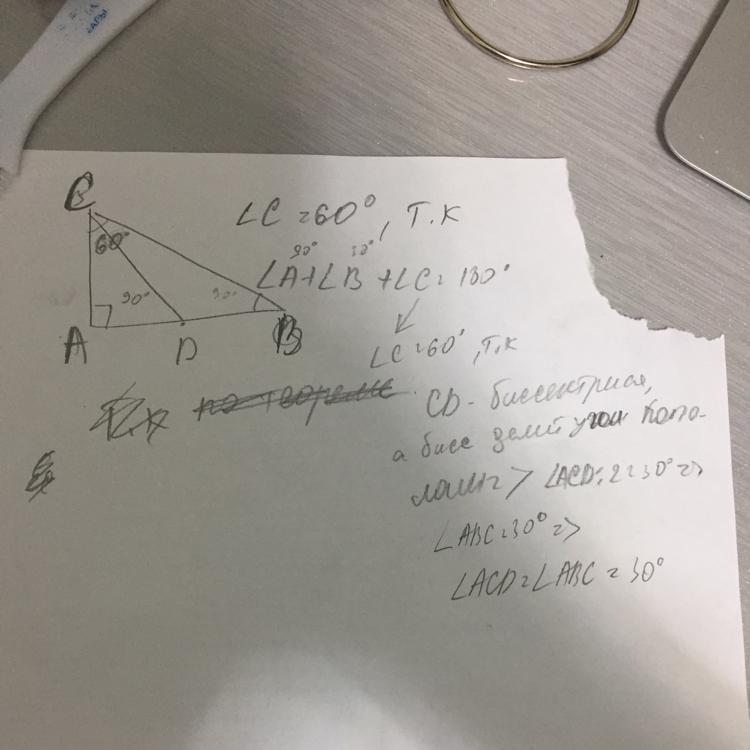 C
60°
90°
30°
A
D
B
∠C = 60°, Т.К
90° 30°
∠A+∠B+∠C=180°
∠C=60°, Т.К
CD - биссектриса,
а бисс делит угол попо-
лам => ∠ACD:2=30° =>
∠ABC=30° =>
∠ACD=∠ABC=30°